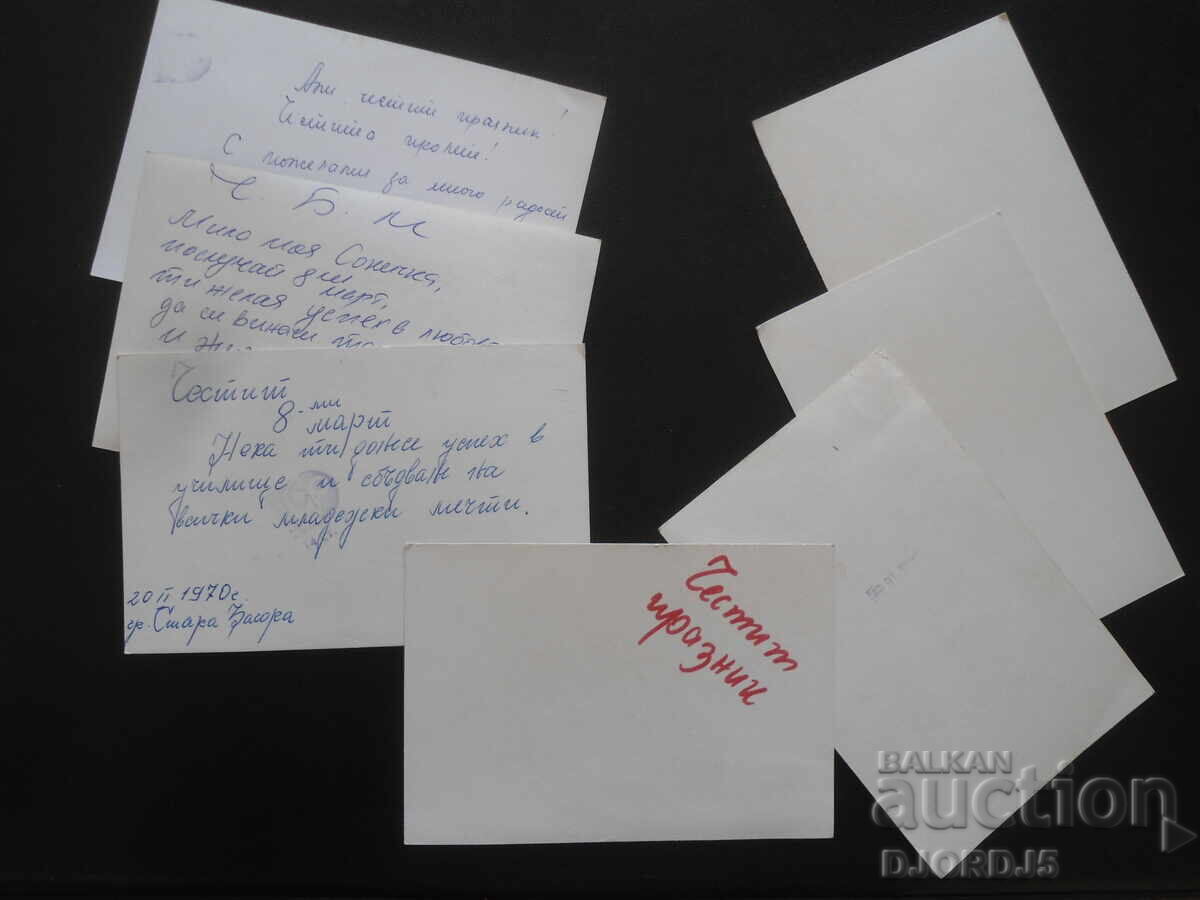 Ани честит празник!
Честита пролет!
С пожелания за много радост
Ч. Б. М
Мила моя Сонечка,
по случай 8ми
март,
ти желая успех в любовта
да си винаги
и
Честит
8-ми
март
Нека ти донесе успех в
училище и сбъдване на
всички младежки мечти.
20 II 1970г.
гр. Стара Загора
Честит
празник
BALKAN
auction
DJORDJ5